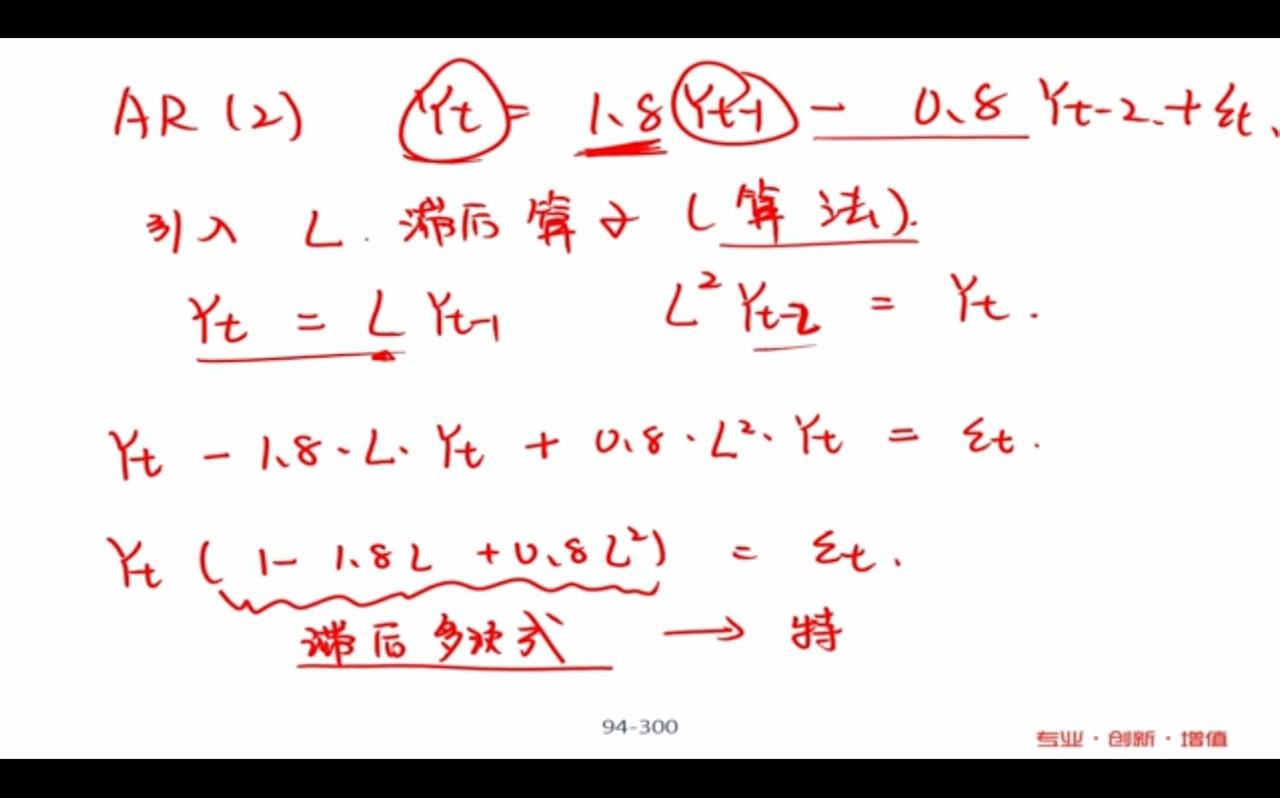 AR(2) Yt = 1.8 Yt-1 - 0.8 Yt-2 + εt.
引入 L. 滞后算子(算法).
Yt = L Yt-1 L² Yt-2 = Yt.
Yt - 1.8·L·Yt + 0.8·L²·Yt = εt.
Yt (1 - 1.8L + 0.8L²) = εt.
滞后多项式 → 特
94-300
专业·创新·增值